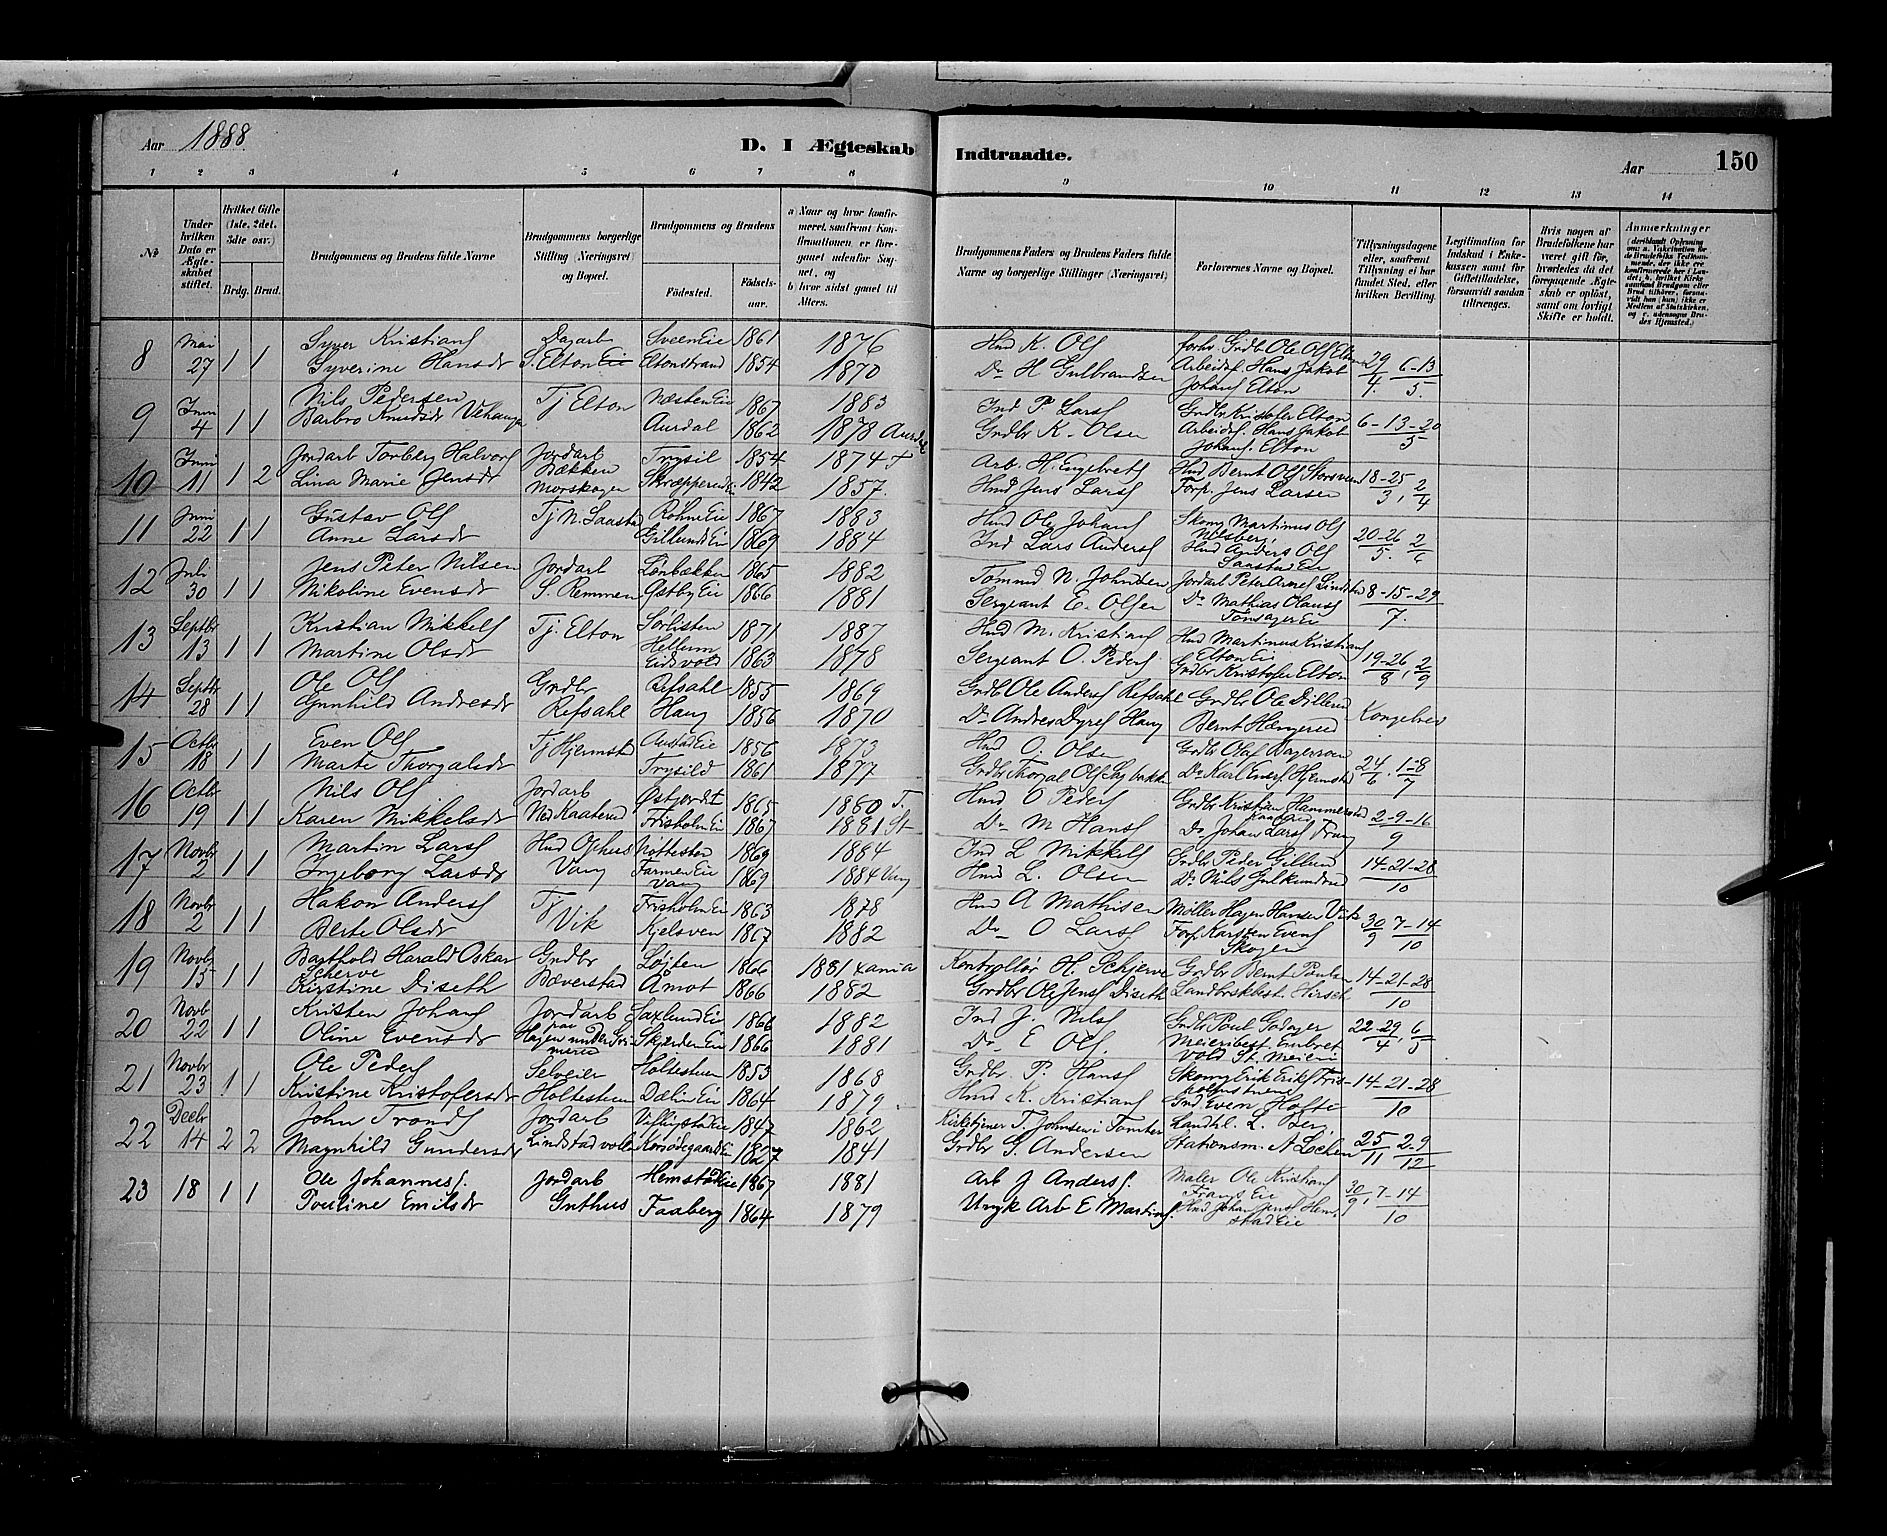 Aar 1888
D. I Ægteskab Indtraadte.
Aar 150
1 2 3 4 5 6 7 8 9 10 11 12 13 14
No
Under hvilken Dato er Ægteskabet stiftet.
Hvilket Gifte (1ste, 2det, 3die osv.)
Brdg. Brud.
Brudgommens og Brudens fulde Navne
Brudgommens borgerlige Stilling (Næringsvei) og Bopæl.
Brudgommens og Brudens
Födested. Födselsaar.
a Naar og hvor konfirmeret, saafremt Konfirmationen er foregaaet udenfor Sognet, og
b hvor sidst gaaet til Alters.
Brudgommens Faders og Brudens Faders fulde Navne og borgerlige Stillinger (Næringsvei)
Forlovernes Navne og Bopæl.
Tillysningsdagene eller, saafremt Tillysning ei har fundet Sted, efter hvilken Bevilling.
Legitimation for Indskud i Enkekassen samt for Giftetilladelse, forsaavidt saadan tiltrænges.
Hvis nogen af Brudefolkene har været gift för, hvorledes da det foregaaende Ægteskab er oplöst, samt om lovligt Skifte er holdt.
Anmærkninger
8 Mai 27 1 1 Syver Kristians Dagarb SveenEie 1861 1876 Hmd K. Ols forhv Grdbr Ole Ols Elton 29/4. 6-13/5.
Syverine Hansdr S. Elton Eie Eltonstrand 1854 1870 Do H Gulbrandsen Arbeidsf. Hans Jakob Johans Elton
9 Juni 4 1 1 Nils Pedersen Tj Elton NæstenEie 1867 1883 Ind P Lars Grdbr Kristofer Elton 6-13-20/5
Barbro Knudsdr Aurdal 1862 1878 Aurdal Grdbr K. Olsen Arbeidsf. Hans Jakob Johans. Elton
10 Juni 11 1 2 Jordarb Torberg Halvors Jordarb Trysil 1854 1874 T Arb. H. Engebrets Hmd Bernt Ols 18-25/3, 2/4
Lina Marie Jensdr Bækken Morskogen 1842 1857. Hmd Jens Lars Forp. Jens Larsen
11 Juni 22 1 1 Gustav Ols Tj N. Saastad RohneEie 1867 1883 Hmd Ole Johans Skom Martinus Ols Nilsberg, 20-26/5. 2/6
Anne Larsdr GillundEie 1869 1884 Ind Lars Anders Hmd Anders Ols Saastad Eie
12 Juli 30 1 1 Jens Peter Nilsen Jordarb Lönbækken 1865 1882 Tömmd N. Johnsen Jordarb Peter Arnes 8-15-29/7.
Nikoline Evensdr S. Remmen ØstbyEie 1866 1881 Sergeant E. Olsen Do Mathias Olaus
13 Septbr 13 1 1 Kristian Mikkels Tj. Elton Sørlisten 1871 1887 Hmd M. Kristians Hmd Martinus Kristians EltonEie 19-26/8, 2/9
Martine Olsdr Hellum Eidsvold 1863 1878 Sergeant O. Peders Grdbr Kristofer Elton
14 Septbr 28 1 1 Ole Ols Grdbr Refsahl 1855 1869 Grdb Ole Anders Refsahl Grdbr Ole Dillerud Kongebrev
Gunhild Andresdr Refsahl Haug 1856 1870 Do Andres Haug Bernt
15 Octbr 18 1 1 Even Ols Tj Hjemstad AustadEie 1856 1873 Hmd O. Olsen Grdbr Olaf 24/6. 1-8/7
Marte Thorgalsdr Trysild 1861 1877 Grdbr Do Karl Hjemstad
16 Octbr 19 1 1 Nils Ols Jordarb Østjordet 1865 1880 T. Hmd O Peders Grdbr Kristian 2-9-16/9
Karen Mikkelsdr Ned Kaaterud FrisholmEie 1867 1881 St Do M Hans Do Johan Lars
17 Novbr 2 1 1 Martin Lars Hmd Ophus 1869 1884 Ind L Mikkels Grdbr Peder Gillund 14-21-28/10
Ingeborg Larsdr Vang FarmenEie Vang 1869 1884 Vang Hmd L. Olsen Do Nils
18 Novbr 2 1 1 Hakon Anders Tj Vik FrisholmEie 1863 1878 Hmd A Mathisen Møller Hagen Hansen Vik 30/9 7-14/10
Berte Olsdr Kjelsven 1867 1882 Do O Lars Forp Karsten Evens Skogen
19 Novbr 15 1 1 Barthold Harald Oskar Scherve Grdbr Løjten 1866 1881 Xania Kontrollör H. Schjerve Grdbr Bernt 14-21-28/10
Kirstine Diseth Bæverstad Åmot 1866 1882 Grdbr Ole Jens Diseth Landbrskbest. Hirsch
20 Novb 22 1 1 Kristen Johans Jordarb paa SaxlundEie 1866 1882 Ind J. Nils Grdbr Poul 22-29/4, 6/5
Oline Evensdr Hagen under Grimerud SkjærdenEie 1866 1881 Do E Ols. Meieribest Embret Vold St. Meieri
21 Novbr 23 1 1 Ole Peders Selveier Holtestuen 1853 1868 Grdbr. P. Hans Skomg Erik Eriks 14-21-28/10
Kristine Kristofersdr Holtestuen DælinEie 1864 1879 Hmd K. Kristians Grd. Even Hofte
22 Decbr 14 2 2 John Tronds Jordarb 1847 1862 Kirketjener T. Johnsen i Tomter Landhl. L. Berg, 25/11 2-9/12
Magnhild Gundersdr Lindstad vollen 1827 1841 Grdbr G. Andersen Stationsm. A Lochen
23 18 1 1 Ole Johannes. Jordarb HemstadEie 1867 1881 Arb J Anders. Maler Ole Kristians FrangsEie 30/9, 7-14/10
Pouline Emilsdr Gnthus Faaberg 1864 1879 Ungk Arb E Martins. Hmd Johan Jens HemstadEie